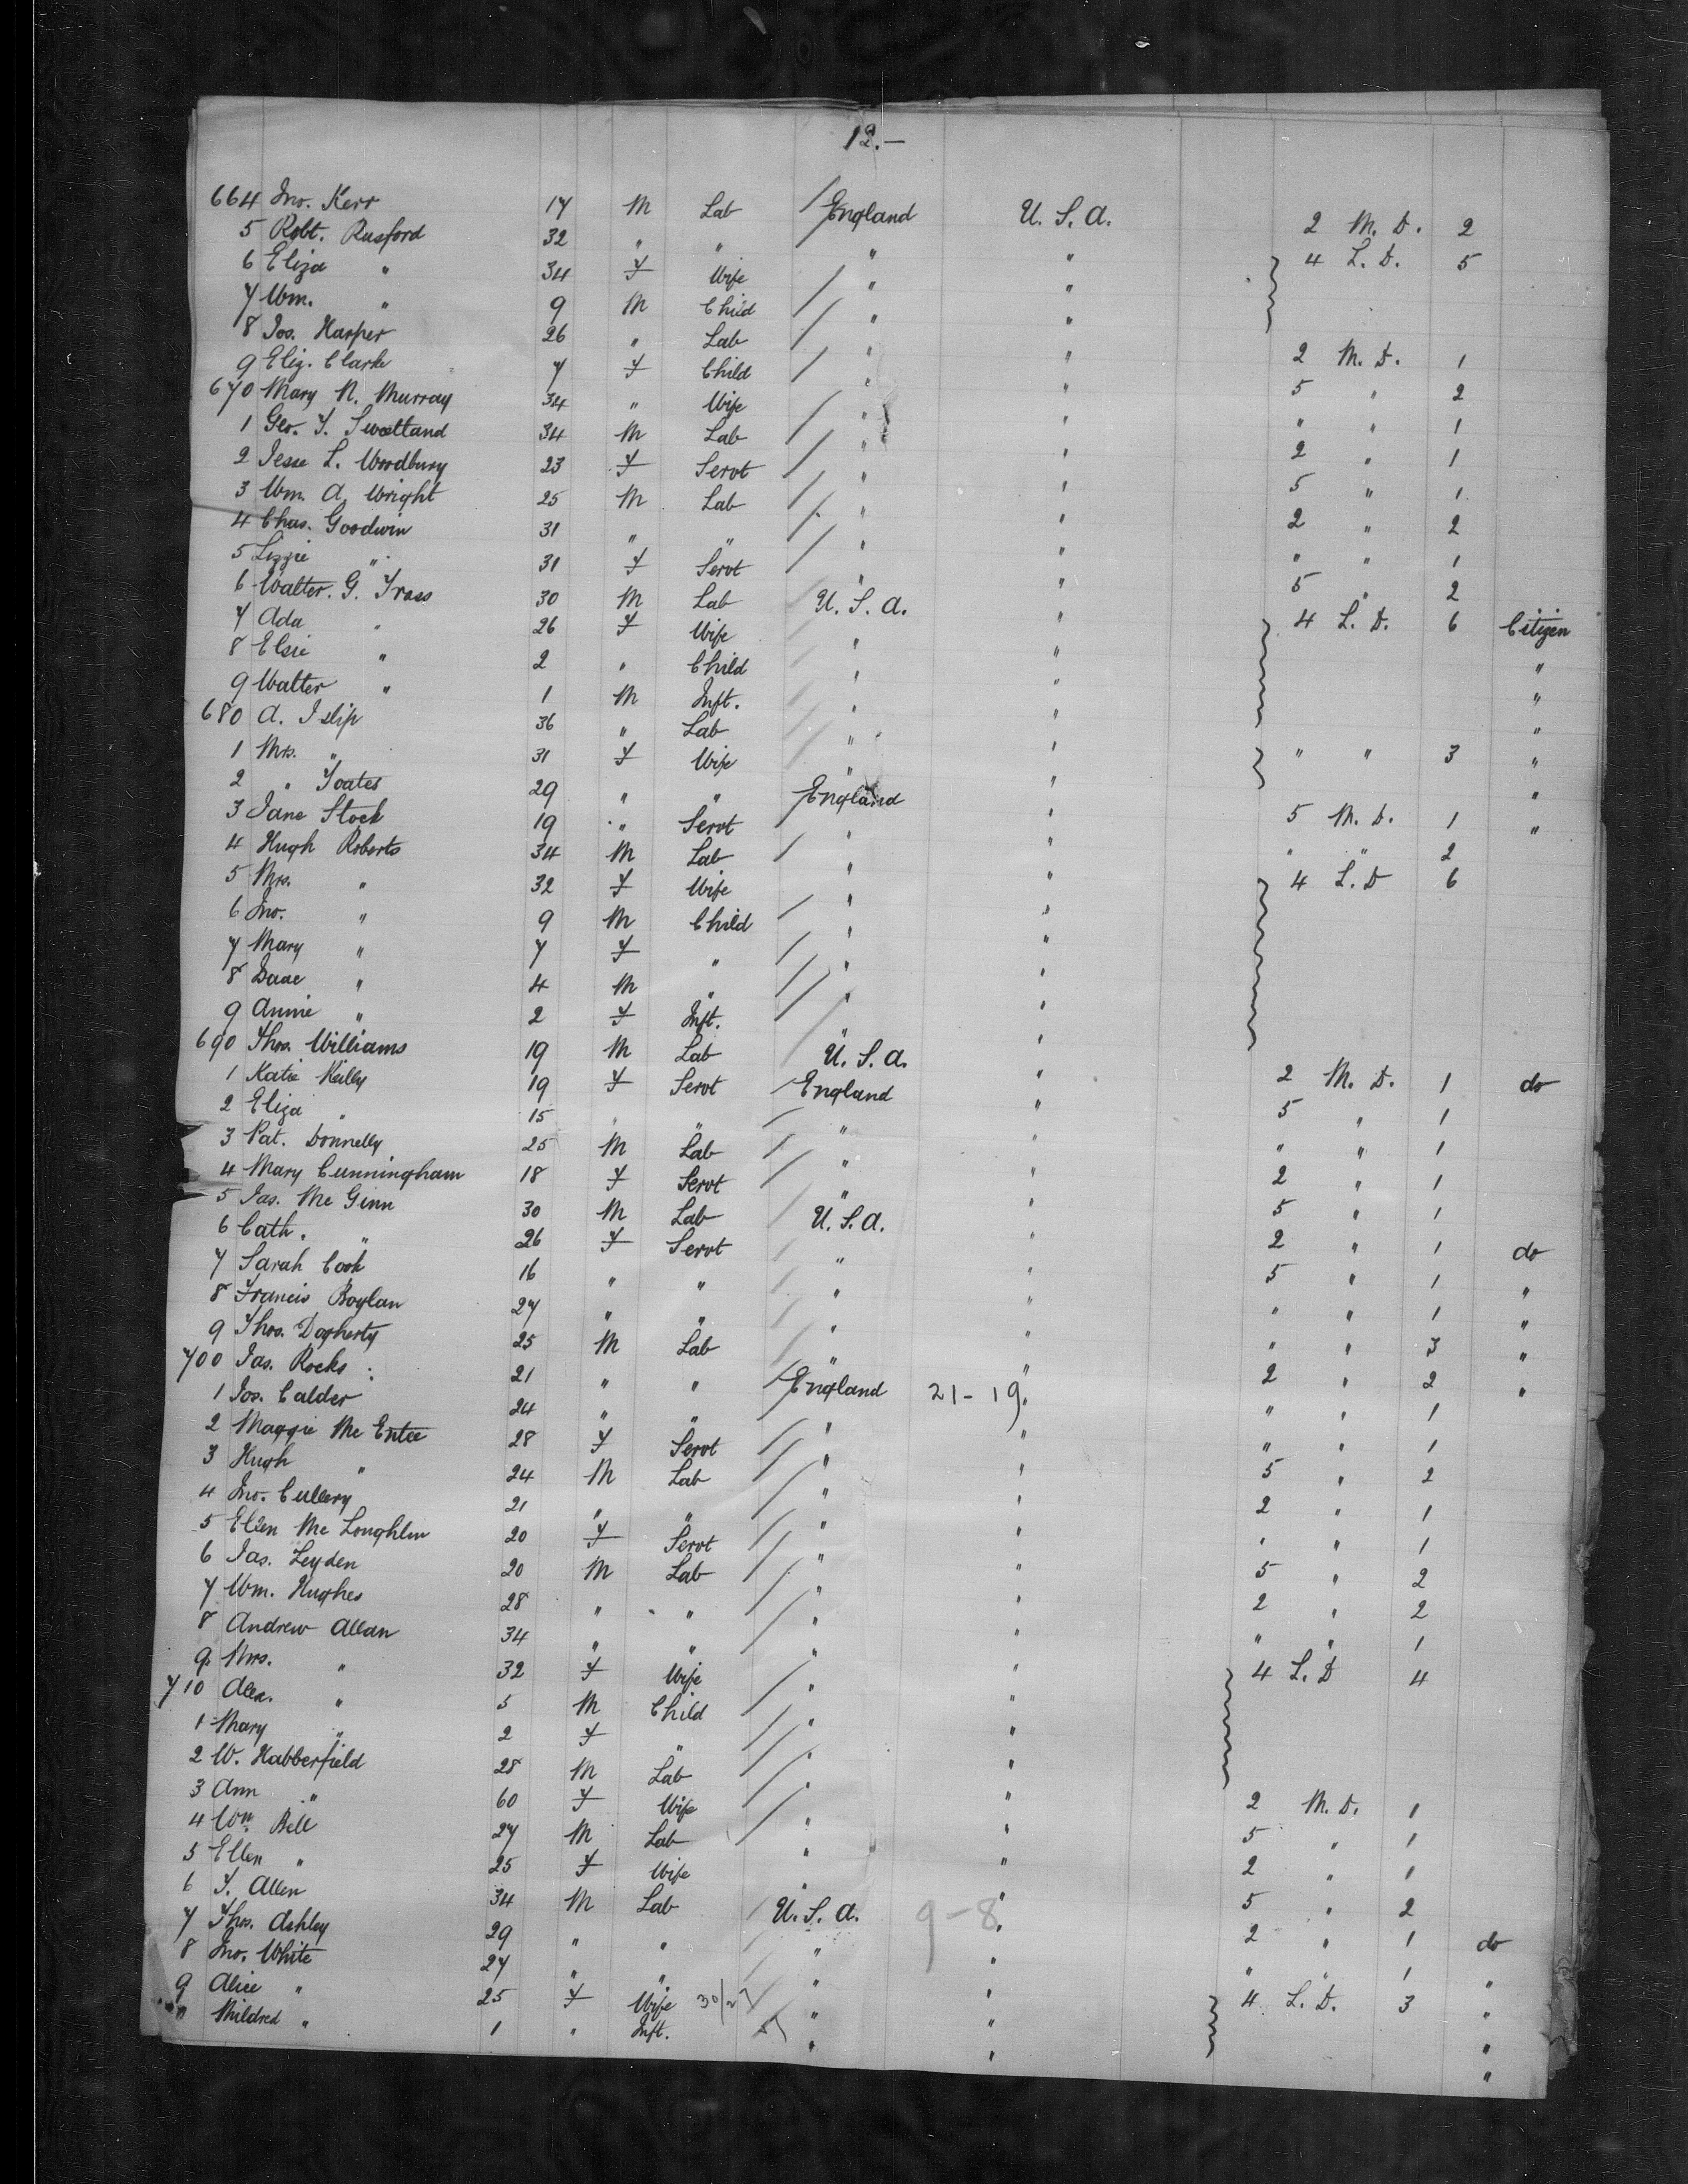 12.—
664 Jno. Kerr 17 M Lab / England U. S. A. 2 M. D. 2
5 Robt. Rusford 32 " " / " " 4 L. D. 5
6 Eliza " 34 F Wife / " "
7 Wm. " 9 M Child / " "
8 Jos. Harper 26 " Lab / " " 2 M. D. 1
9 Eliz. Clarke 7 F Child / " " 5 " 2
670 Mary N. Murray 34 " Wife / " " " " 1
1 Geo. F. Swetland 34 M Lab / " " 2 " 1
2 Jesse L. Woodbury 23 F Servt / " " 5 " 1
3 Wm. A. Wright 25 M Lab / " " 2 " 2
4 Chas. Goodwin 31 " " / " " " " 1
5 Lizzie " 31 F Servt / " " 5 " 2
6 Walter. G. Trass 30 M Lab / U. S. A. " 4 L. D. 6 Citizen
7 Ada " 26 F Wife / " " "
8 Elsie " 2 " Child / " " "
9 Walter " 1 M Inft. / " " "
680 A. Islip 36 " Lab / " " " " 3 "
1 Mrs. " 31 F Wife / " " "
2 " Toates 29 " " England " 5 M. D. 1 "
3 Jane Stock 19 " Servt / " " " " 2
4 Hugh Roberts 34 M Lab / " " 4 L. D 6
5 Mrs. " 32 F Wife / " "
6 Jno. " 9 M Child / " "
7 Mary " 7 F " / " "
8 Isaac " 4 M " / " "
9 Annie " 2 F Inft. / " "
690 Thos. Williams 19 M Lab / U. S. A. " 2 M. D. 1 do
1 Katie Reilly 19 F Servt / England " 5 " 1
2 Eliza " 15 " " / " " " " 1
3 Pat. Donnelly 25 M Lab / " " 2 " 1
4 Mary Cunningham 18 F Servt / " " 5 " 1
5 Jas. Mc Ginn 30 M Lab / U. S. A. " 2 " 1 do
6 Cath. " 26 F Servt / " " 5 " 1 "
7 Sarah Cook 16 " " / " " " " 1 "
8 Francis Boylan 27 " " / " " " " 3 "
9 Thos. Dogherty 25 M Lab / " " 2 " 2 "
700 Jas. Rocks 21 " " / England 21-19 " " " 1
1 Jos. Calder 24 " " / " " " " 1
2 Maggie Mc Entee 28 F Servt / " " 5 " 2
3 Hugh " 24 M Lab / " " 2 " 1
4 Jno. Cullery 21 " " / " " " " 1
5 Ellen Mc Loughlin 20 F Servt / " " 5 " 2
6 Jas. Leyden 20 M Lab / " " 2 " 2
7 Wm. Hughes 28 " " / " " " " 1
8 Andrew Allan 34 " " / " " 4 L. D 4
9 Mrs. " 32 F Wife / " "
710 Alex. " 5 M Child / " "
1 Mary " 2 F " / " "
2 W. Habberfield 28 M Lab / " " 2 M. D. 1
3 Ann " 60 F Wife / " " 5 " 1
4 Wm. Bell 27 M Lab / " " 2 " 1
5 Ellen " 25 F Wife " " 5 " 2
6 T. Allen 34 M Lab / U. S. A. 9-8 " 2 " 1 do
7 Thos. Ashley 29 " " / " " " " 1 "
8 Jno. White 27 " " / " " 4 L. D. 3 "
9 Alice " 25 F Wife " " "
" Mildred " 1 " Inft. " " "